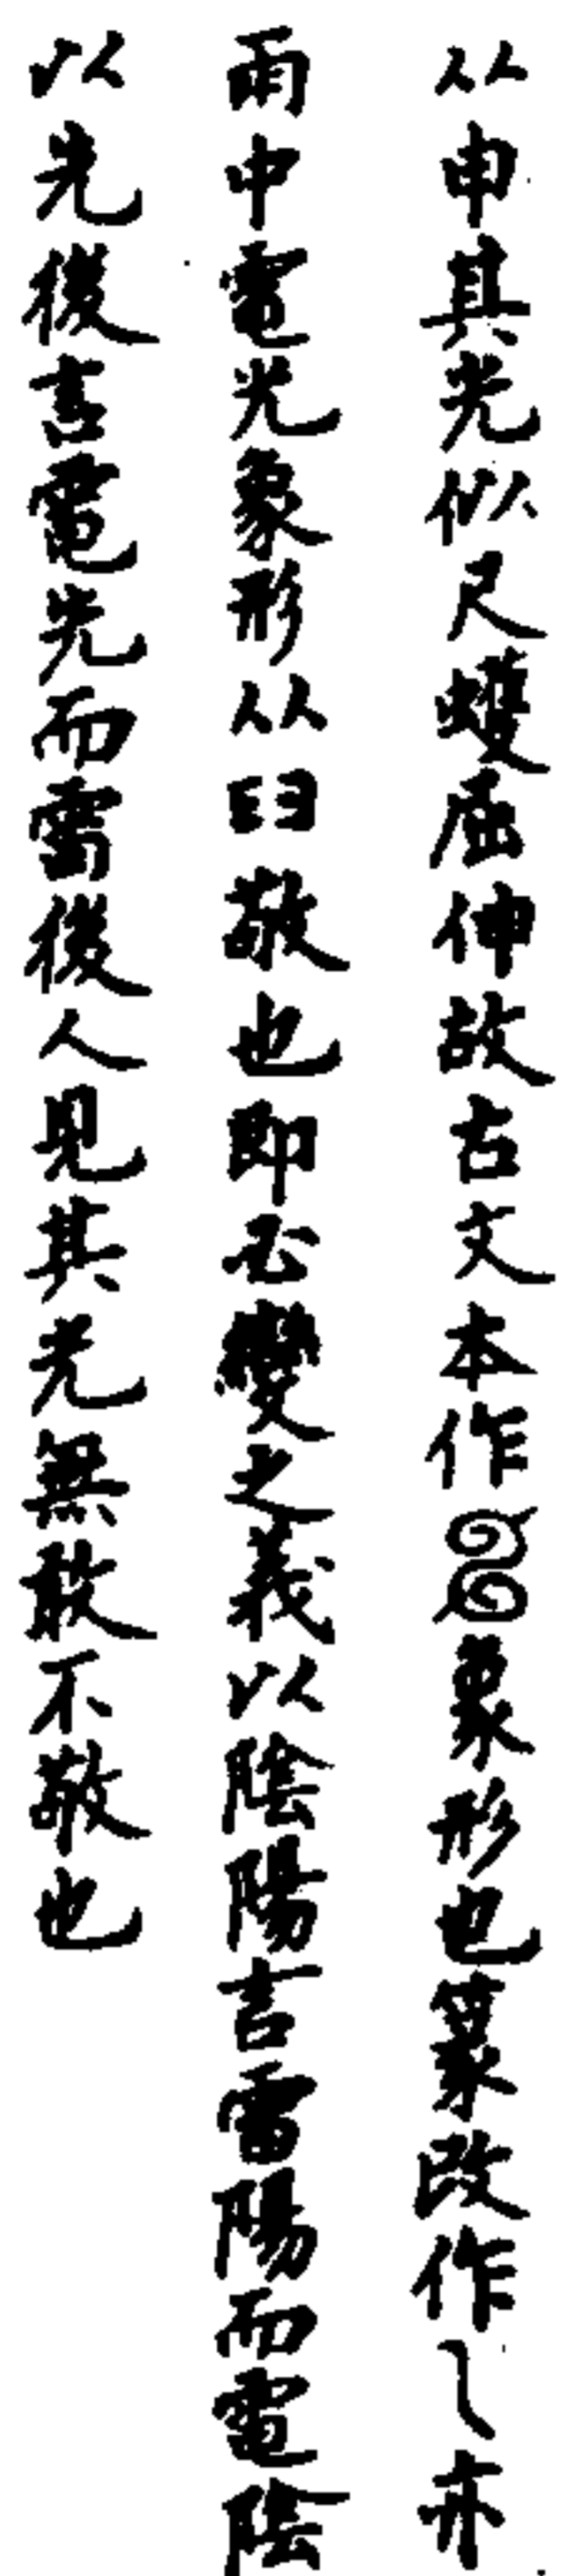 从申其光似尺蠖屈伸故古文本作象形也篆改作乀亦
雨中電光象形从𦥑敬也即必變之義以陰陽言雷陽而電陰
以先後言電先而雷後人見其光無敢不敬也